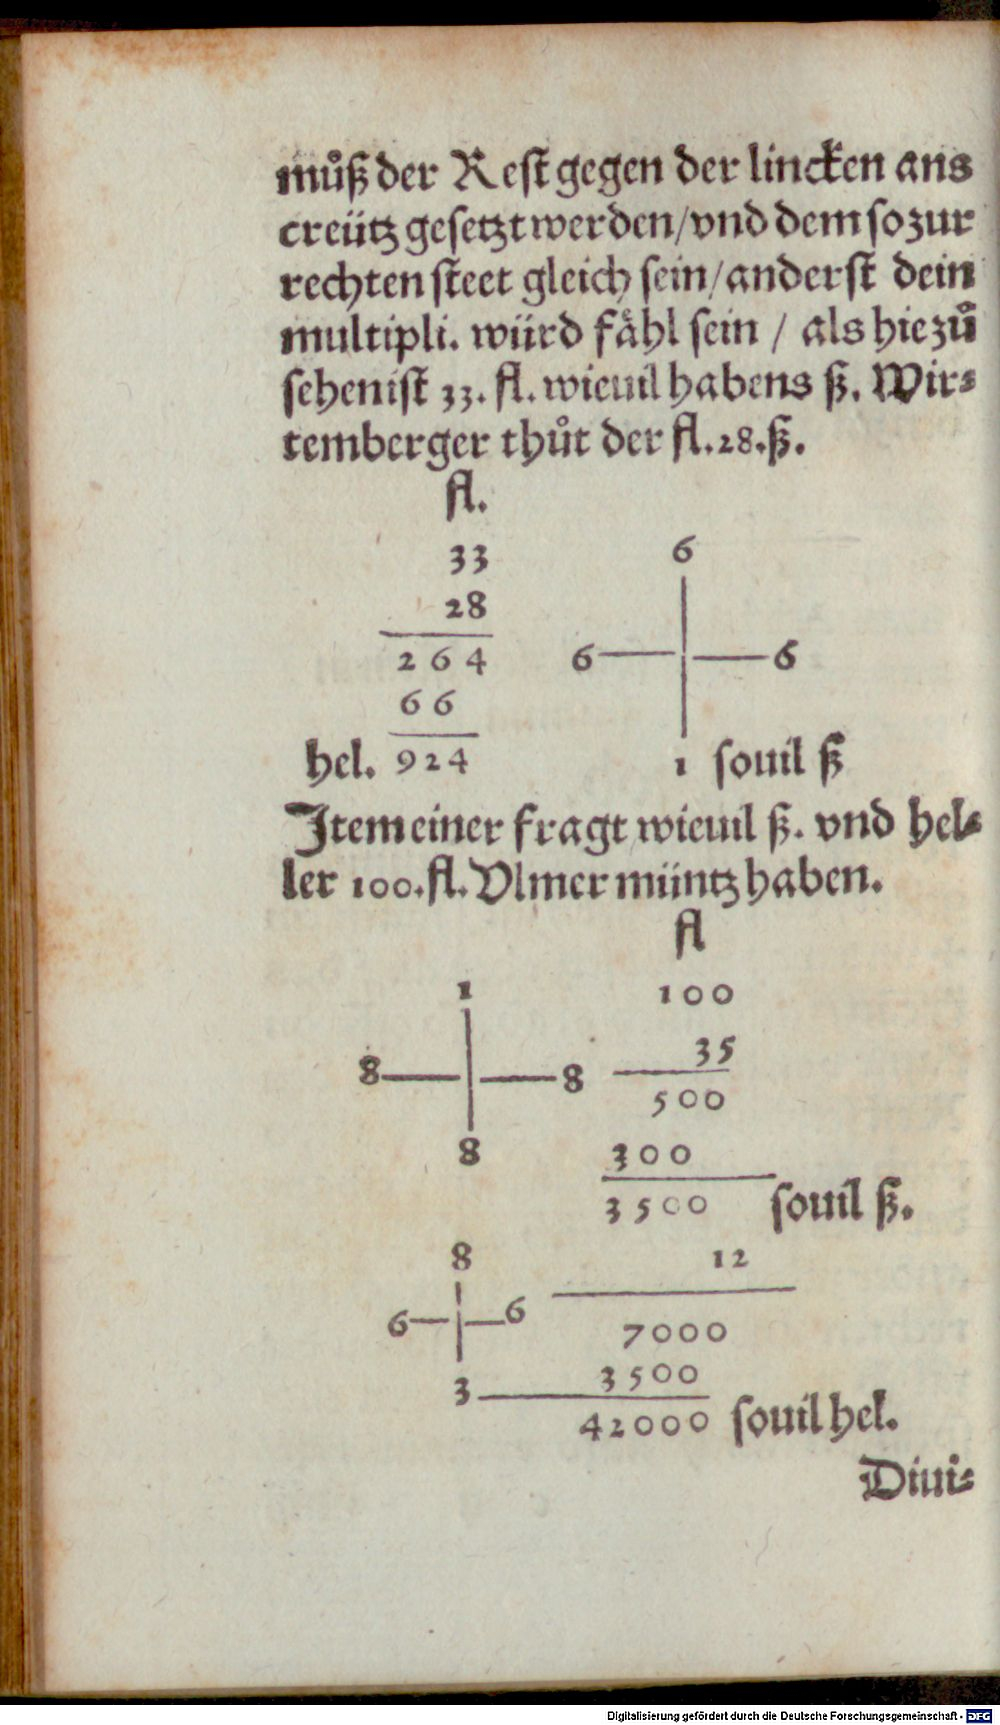 muͦß der Rest gegen der lincken ans
creütz gesetzt werden/vnd dem so zur
rechten steet gleich sein/anderst dein
multipli. würd faͤhl sein / als hie zuͦ
sehen ist 33. fl. wieuil habens ß. Wir⸗
temberger thuͦt der fl. 28. ß.
fl.
33
28
264
66
hel. 924
6
6 6
1 souil ß
Item einer fragt wieuil ß. vnd hel⸗
ler 100. fl. Vlmer müntz haben.
fl
1
8 8
8
100
35
500
300
3500 souil ß.
8
6 6
3
12
7000
3500
42000 souil hel.
Diui⸗
Digitalisierung gefördert durch die Deutsche Forschungsgemeinschaft - DFG